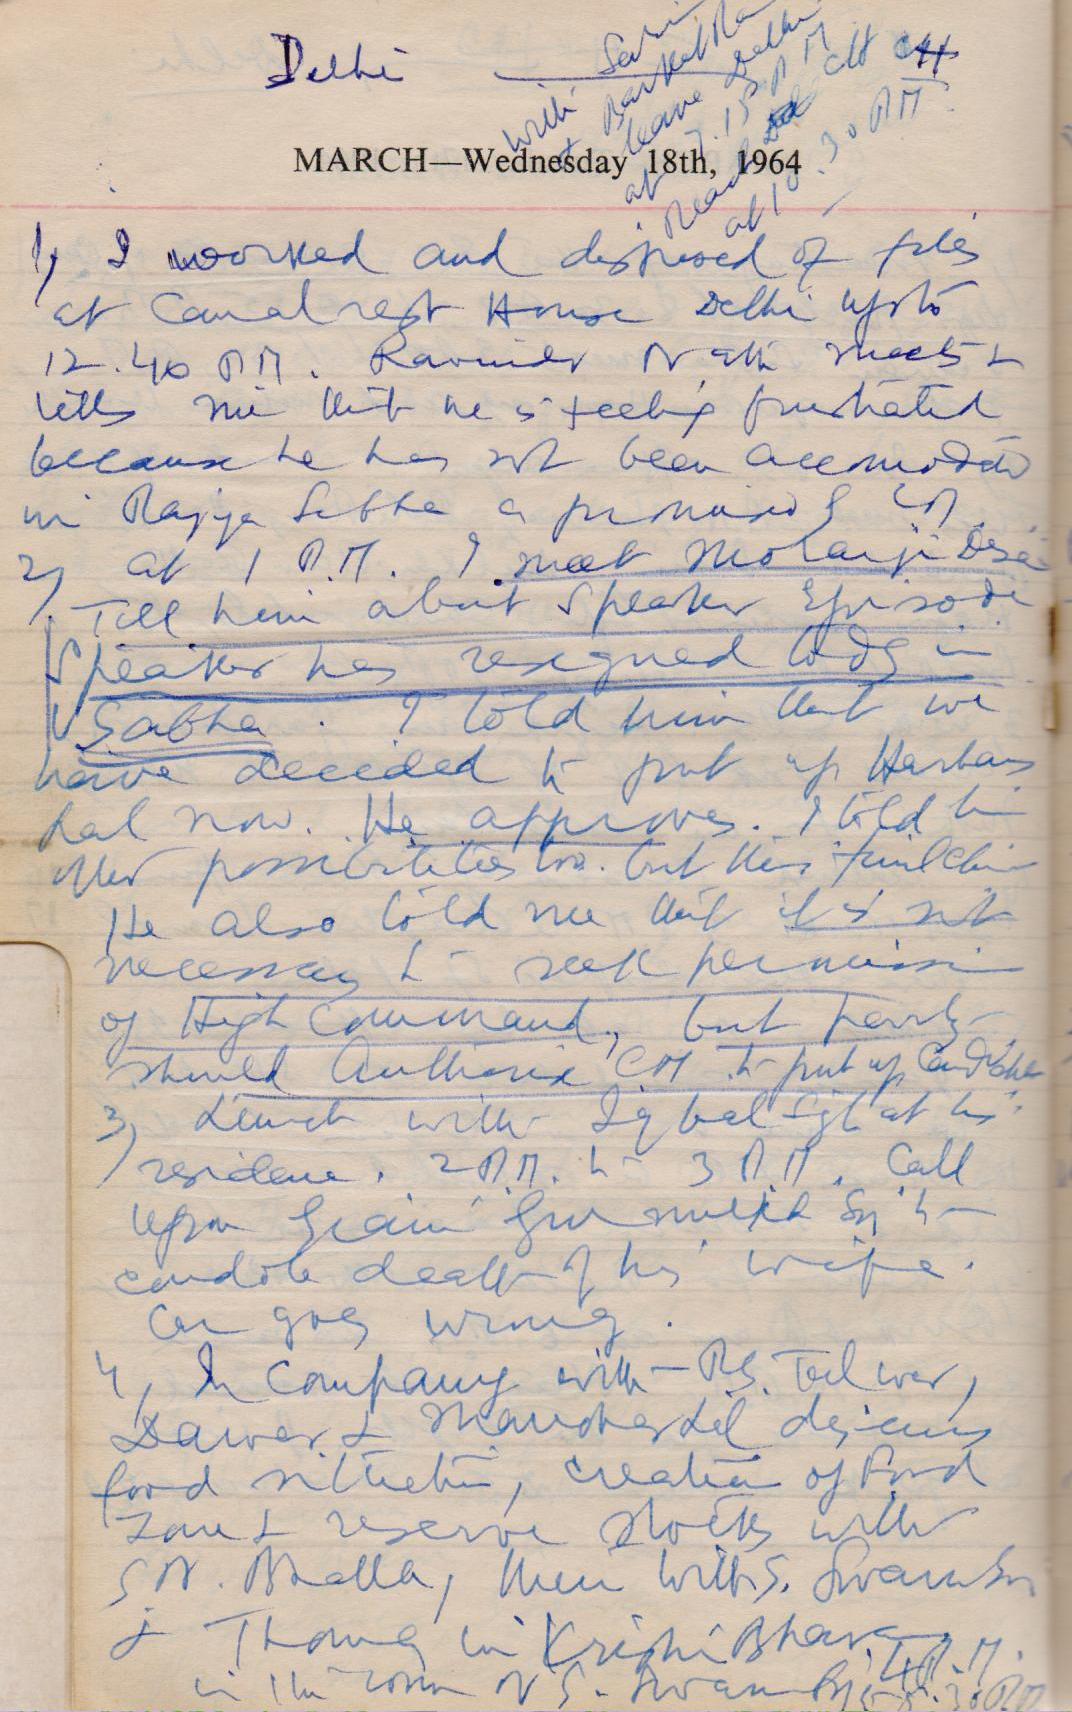 Delhi
with
Barkat Ram
leave Delhi
at 7.15 P.M.
Reach CH
at 10.30 PM
MARCH—Wednesday 18th, 1964
1) I worked and disposed of files
at Canal rest House Delhi upto
12.40 P.M. Ravinder Nath meets &
tells me that he is feeling frustrated
because he has not been accomodated
in Rajya Sabha as promised by CM
2) at 1 P.M. I meet Morarji Desai
Tell him about Speaker Episode
Speaker has resigned today in
Sabha. I told him that we
have decided to put up Harbans
Lal now. He approves. I told him
other possibilities too. but this
He also told me that it is not
necessary to seek permission
of High Command, but party
should Authorise CM to put up Candidate
3) Lunch with Iqbal Sgh at his
residence. 2 P.M. to 3 P.M. Call
upon Giani Gurmukh Sgh to
condole death of his wife.
Car goes wrong.
4) In Company with R.S. Talwar,
Dawer & Manoharlal discuss
food situation, creation of Food
Zone & reserve stocks with
S N. Bhalla, then with S. Swaran Sgh
& Thomas in Krishi Bhavan 4 P.M.
in the room of S. Swaran Sgh 5.30 PM